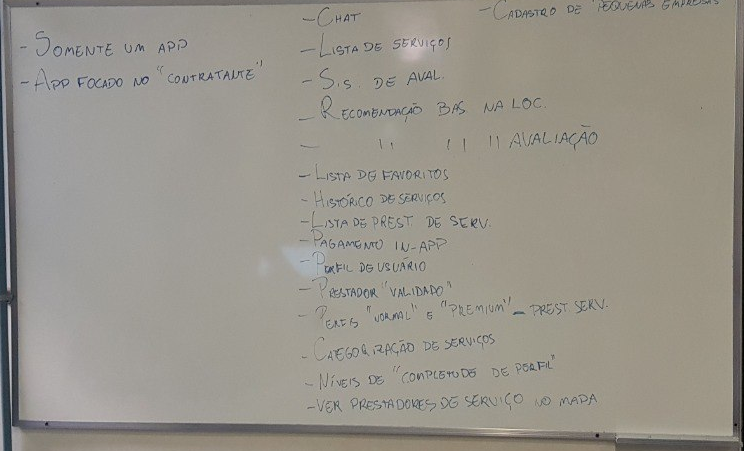 - SOMENTE UM APP
- APP FOCADO NO "CONTRATANTE"
- CHAT
- LISTA DE SERVIÇOS
- SIS. DE AVAL.
- RECOMENDAÇÃO BAS. NA LOC.
- " " " AVALIAÇÃO
- LISTA DE FAVORITOS
- HISTÓRICO DE SERVIÇOS
- LISTA DE PREST. DE SERV.
- PAGAMENTO IN-APP
- PERFIL DE USUÁRIO
- PRESTADOR "VALIDADO"
- PERFIS "NORMAL" E "PREMIUM" - PREST. SERV.
- CATEGORIZAÇÃO DE SERVIÇOS
- NÍVEIS DE "COMPLETUDE DE PERFIL"
- VER PRESTADORES DE SERVIÇO NO MAPA
- CADASTRO DE "PEQUENAS EMPRESAS"